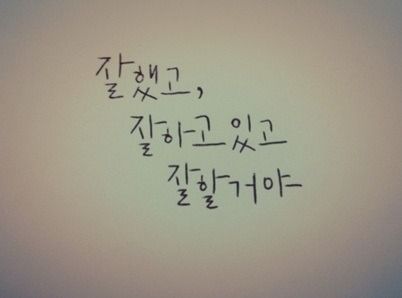 잘했고,
잘하고 있고
잘할거야